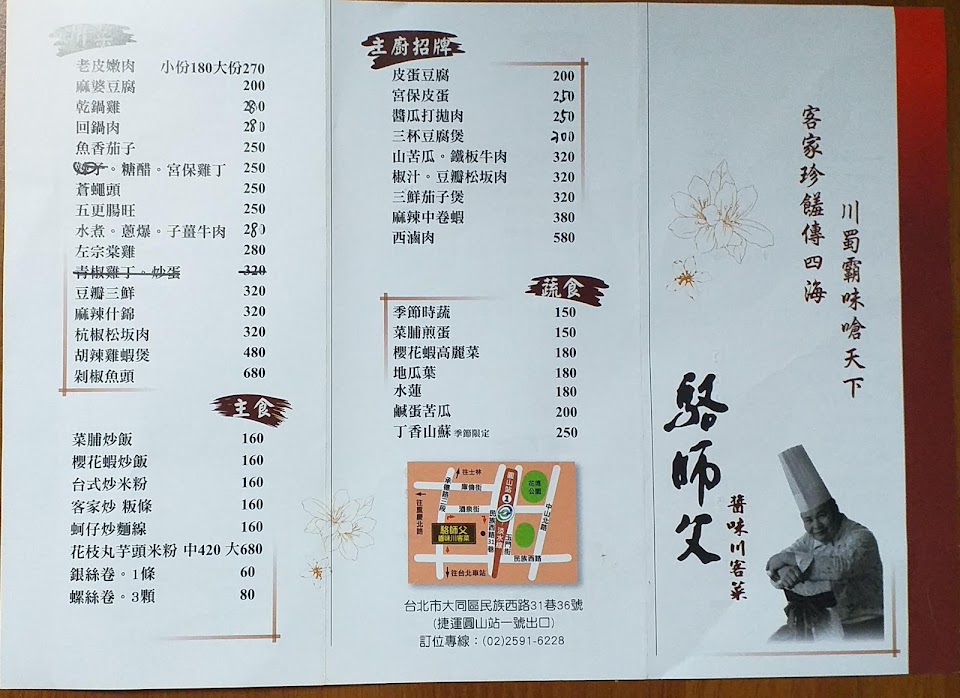 川菜
老皮嫩肉 小份180大份270
麻婆豆腐 200
乾鍋雞 280
回鍋肉 280
魚香茄子 250
。糖醋。宮保雞丁 250
蒼蠅頭 250
五更腸旺 250
水煮。蔥爆。子薑牛肉 280
左宗棠雞 280
青椒雞丁。炒蛋 320
豆瓣三鮮 320
麻辣什錦 320
杭椒松坂肉 320
胡辣雞蝦煲 480
剁椒魚頭 680
主食
菜脯炒飯 160
櫻花蝦炒飯 160
台式炒米粉 160
客家炒 粄條 160
蚵仔炒麵線 160
花枝丸芋頭米粉 中420 大680
銀絲卷。1條 60
螺絲卷。3顆 80
主廚招牌
皮蛋豆腐 200
宮保皮蛋 250
醬瓜打拋肉 250
三杯豆腐煲 300
山苦瓜。鐵板牛肉 320
椒汁。豆瓣松坂肉 320
三鮮茄子煲 320
麻辣中卷蝦 380
西滷肉 580
蔬食
季節時蔬 150
菜脯煎蛋 150
櫻花蝦高麗菜 180
地瓜葉 180
水蓮 180
鹹蛋苦瓜 200
丁香山蘇 季節限定 250
往士林
庫倫街
承德路三段
酒泉街
往重慶北路
圓山站
1
淡水線
花博公園
中山北路
玉門街
民族西路31巷
民族西路
駱師父
醬味川客菜
往台北車站
台北市大同區民族西路31巷36號
(捷運圓山站一號出口)
訂位專線：(02)2591-6228
川蜀霸味嗆天下
客家珍饈傳四海
駱師父
醬味川客菜